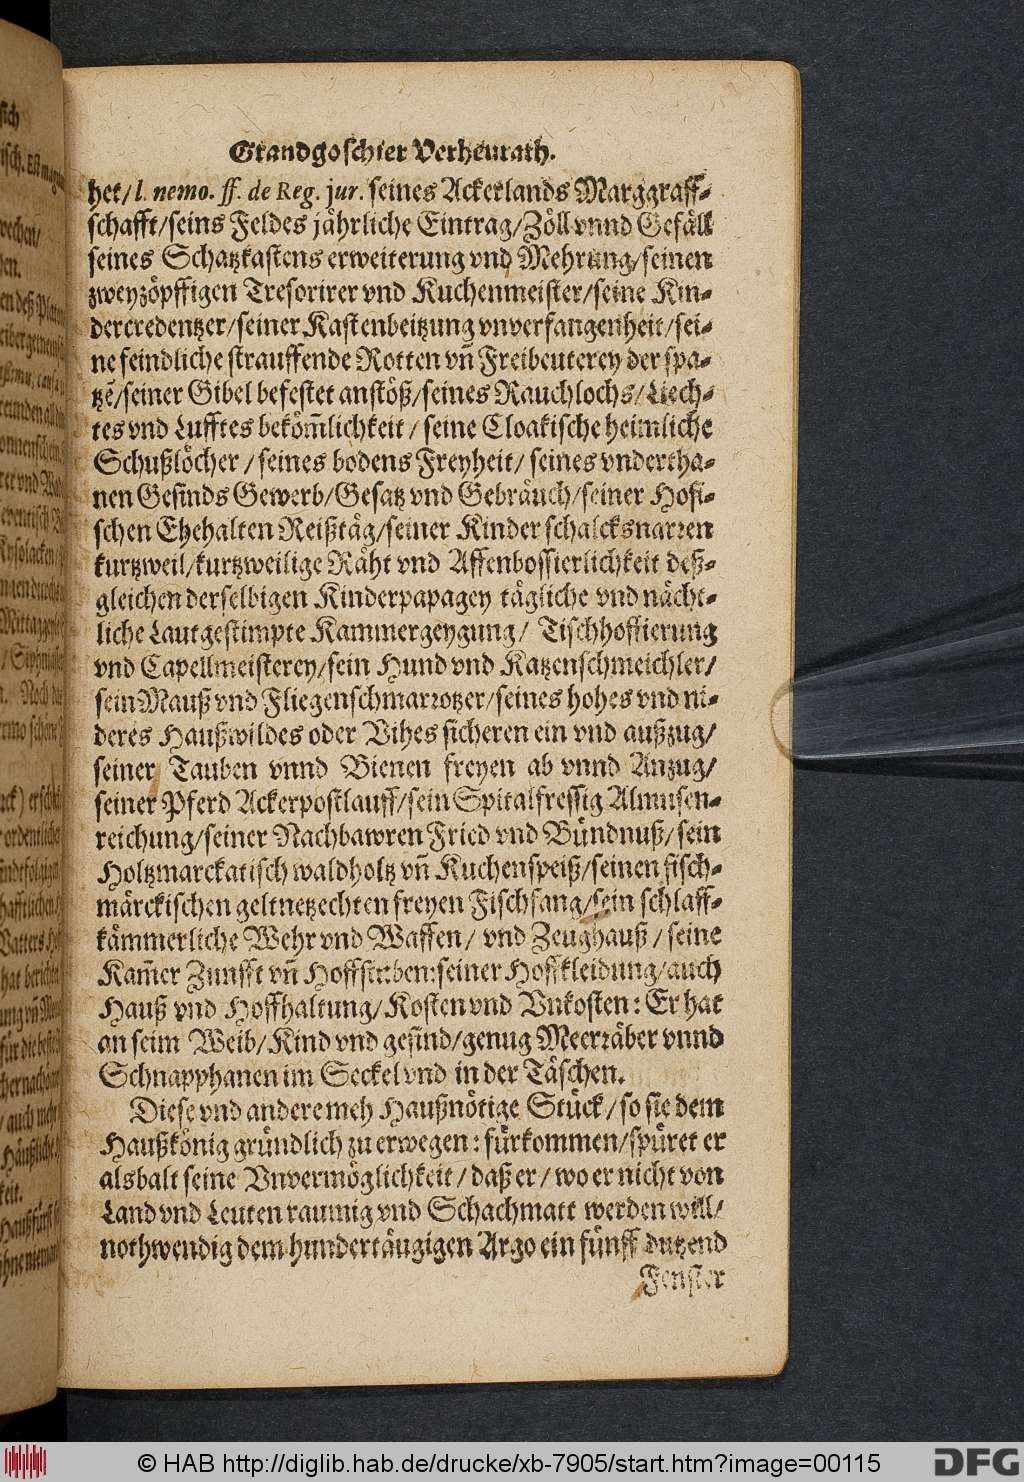 Grandgoschier Verheurath.
het/ l. nemo. ff. de Reg. jur. seines Ackerlands Marggraff-
schafft/seins Feldes jährliche Eintrag/Zöll vnnd Gefäll
seines Schatzkastens erweiterung vnd Mehrung/seinen
zweyzöpffigen Tresorirer vnd Kuchenmeister/seine Kin-
dercredentzer/seiner Kastenbeitzung vnverfangenheit/sei-
ne feindliche strauffende Rotten vñ Freibeuterey der spa-
tzẽ/seiner Gibel befestet anstöß/seines Rauchlochs/Liech-
tes vnd Lufftes beköm̃lichkeit/ seine Cloakische heimliche
Schußlöcher / seines bodens Freyheit/ seines vndertha-
nen Gesinds Gewerb/Gesatz vnd Gebräuch/seiner Hofi-
schen Ehehalten Reißtäg/seiner Kinder schalcksnarren
kurtzweil/kurtzweilige Räht vnd Affenbossierlichkeit deß-
gleichen derselbigen Kinderpapagey tägliche vnd nächt-
liche Lautgestimpte Kammergeygung/ Tischhoffierung
vnd Capellmeisterey/sein Hund vnd Katzenschmeichler/
sein Mauß vnd Fliegenschmarrotzer/seines hohes vnd ni-
deres Haußwildes oder Vihes sicheren ein vnd außzug/
seiner Tauben vnnd Bienen freyen ab vnnd Anzug/
seiner Pferd Ackerpostlauff/sein Spitalfressig Almusen-
reichung/seiner Nachbawren Fried vnd Bündnuß/sein
Holtzmarckatisch waldholtz vñ Kuchenspeiß/seinen fisch-
märckischen geltnetzechten freyen Fischfang/sein schlaff-
kämmerliche Wehr vnd Waffen/ vnd Zeughauß / seine
Kam̃er Zunfft vñ Hoffstuben:seiner Hoffkleidung/auch
Hauß vnd Hoffhaltung/Kosten vnd Vnkosten: Er hat
an seim Weib/Kind vnd gesind/genug Meerräber vnnd
Schnapphanen im Seckel vnd in der Täschen.
Diese vnd andere meh Haußnötige Stück/so sie dem
Haußkönig gründlich zu erwegen: fürkommen/spüret er
alsbalt seine Vnvermöglichkeit/ daß er/ wo er nicht von
Land vnd Leuten raumig vnd Schachmatt werden will/
nothwendig dem hundertäugigen Argo ein fünff dutzend
Fenster
© HAB http://diglib.hab.de/drucke/xb-7905/start.htm?image=00115
DFG